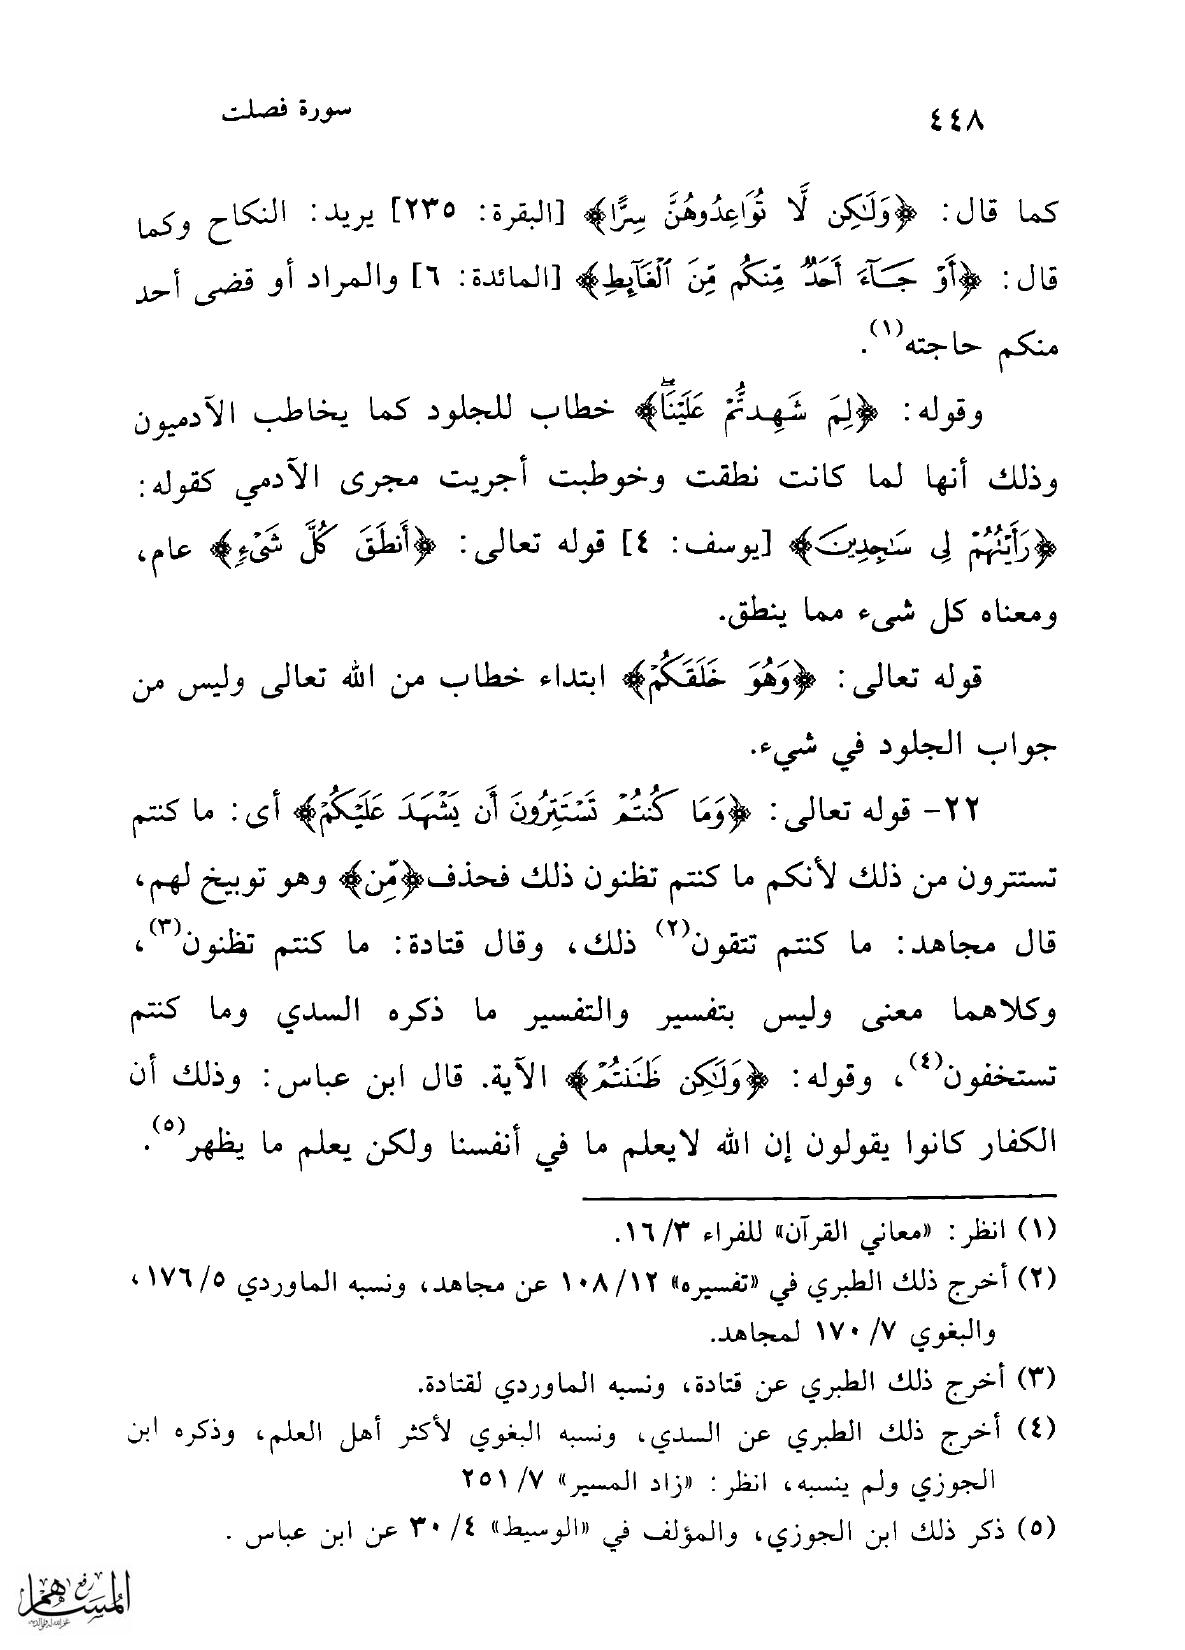 ٤٤٨
سورة فصلت
كما قال: ﴿وَلَٰكِن لَّا تُوَاعِدُوهُنَّ سِرًّا﴾ [البقرة: ٢٣٥] يريد: النكاح وكما
قال: ﴿أَوْ جَآءَ أَحَدٌ مِّنكُم مِّنَ ٱلْغَآئِطِ﴾ [المائدة: ٦] والمراد أو قضى أحد
منكم حاجته(١).
وقوله: ﴿لِمَ شَهِدتُّمْ عَلَيْنَاۖ﴾ خطاب للجلود كما يخاطب الآدميون
وذلك أنها لما كانت نطقت وخوطبت أجريت مجرى الآدمي كقوله:
﴿رَأَيْتُهُمْ لِى سَٰجِدِينَ﴾ [يوسف: ٤] قوله تعالى: ﴿أَنطَقَ كُلَّ شَىْءٍ﴾ عام،
ومعناه كل شىء مما ينطق.
قوله تعالى: ﴿وَهُوَ خَلَقَكُمْ﴾ ابتداء خطاب من الله تعالى وليس من
جواب الجلود في شيء.
٢٢- قوله تعالى: ﴿وَمَا كُنتُمْ تَسْتَتِرُونَ أَن يَشْهَدَ عَلَيْكُمْ﴾ أى: ما كنتم
تستترون من ذلك لأنكم ما كنتم تظنون ذلك فحذف﴿مِّن﴾ وهو توبيخ لهم،
قال مجاهد: ما كنتم تتقون(٢) ذلك، وقال قتادة: ما كنتم تظنون(٣)،
وكلاهما معنى وليس بتفسير والتفسير ما ذكره السدي وما كنتم
تستخفون(٤)، وقوله: ﴿وَلَٰكِن ظَنَنتُمْ﴾ الآية. قال ابن عباس: وذلك أن
الكفار كانوا يقولون إن الله لايعلم ما في أنفسنا ولكن يعلم ما يظهر(٥).
(١) انظر: «معاني القرآن» للفراء ١٦/٣.
(٢) أخرج ذلك الطبري في «تفسيره» ١٠٨/١٢ عن مجاهد، ونسبه الماوردي ١٧٦/٥،
والبغوي ١٧٠/٧ لمجاهد.
(٣) أخرج ذلك الطبري عن قتادة، ونسبه الماوردي لقتادة.
(٤) أخرج ذلك الطبري عن السدي، ونسبه البغوي لأكثر أهل العلم، وذكره ابن
الجوزي ولم ينسبه، انظر: «زاد المسير» ٢٥١/٧
(٥) ذكر ذلك ابن الجوزي، والمؤلف في «الوسيط» ٣٠/٤ عن ابن عباس .